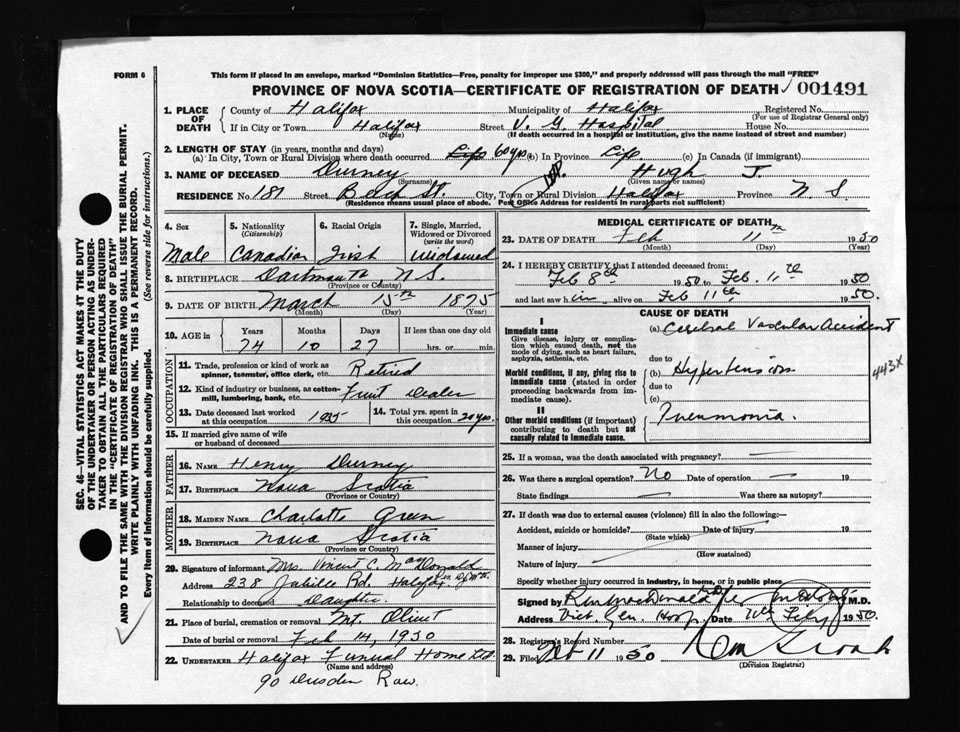 FORM 6
This form if placed in an envelope, marked "Dominion Statistics—Free, penalty for improper use $300," and properly addressed will pass through the mail "FREE"
PROVINCE OF NOVA SCOTIA—CERTIFICATE OF REGISTRATION OF DEATH 001491
1. PLACE OF DEATH County of Halifax Municipality of Halifax Registered No.
(For use of Registrar General only)
If in City or Town Halifax Street V. G. Hospital House No.
(Name) (If death occurred in a hospital or institution, give the name instead of street and number)
2. LENGTH OF STAY (in years, months and days)
(a) In City, Town or Rural Division where death occurred Life 60 yrs (b) In Province Life (c) In Canada (if immigrant)
3. NAME OF DECEASED Durney Hugh J.
(Surname) (Given name or names)
RESIDENCE No. 181 Street St. City, Town or Rural Division Halifax Province N. S.
(Residence means usual place of abode. Post Office Address for residents in rural parts not sufficient)
4. Sex Male
5. Nationality (Citizenship) Canadian
6. Racial Origin Irish
7. Single, Married, Widowed or Divorced (write the word) widowed
8. BIRTHPLACE Dartmouth N.S.
(Province or Country)
9. DATE OF BIRTH March 15th 1875
(Month) (Day) (Year)
10. AGE in Years Months Days If less than one day old
74 10 27 hrs. or min.
OCCUPATION
11. Trade, profession or kind of work as spinner, teamster, office clerk, etc. Retired
12. Kind of industry or business, as cotton-mill, lumbering, bank, etc. Fruit Dealer
13. Date deceased last worked at this occupation 1935
14. Total yrs. spent in this occupation 20 yrs.
15. If married give name of wife or husband of deceased
FATHER
16. NAME Henry Durney
17. BIRTHPLACE Nova Scotia
(Province or Country)
MOTHER
18. MAIDEN NAME Charlotte Green
19. BIRTHPLACE Nova Scotia
(Province or Country)
20. Signature of informant Mrs. Vincent C. MacDonald
Address 238 Jubilee Rd. Halifax
Relationship to deceased Daughter
21. Place of burial, cremation or removal Mt. Olivet
Date of burial or removal Feb 14, 1950
22. UNDERTAKER Halifax Funeral Home Ltd.
(Name and address)
90 Dresden Row.
MEDICAL CERTIFICATE OF DEATH
23. DATE OF DEATH Feb 11th 1950
(Month) (Day) (Year)
24. I HEREBY CERTIFY that I attended deceased from:
Feb 8th 1950 to Feb. 11th 1950
and last saw him alive on Feb 11th 1950.
CAUSE OF DEATH
I
Immediate cause
Give disease, injury or complication which caused death, not the mode of dying, such as heart failure, asphyxia, asthenia, etc.
(a) Cerebral Vascular Accident
due to
Morbid conditions, if any, giving rise to immediate cause (stated in order proceeding backwards from immediate cause).
(b) Hypertension
due to
(c)
443X
II
Other morbid conditions (if important) contributing to death but not causally related to immediate cause.
Pneumonia.
25. If a woman, was the death associated with pregnancy?
26. Was there a surgical operation? No Date of operation 19
State findings Was there an autopsy?
27. If death was due to external causes (violence) fill in also the following:—
Accident, suicide or homicide? Date of injury 19
(State which)
Manner of injury
(How sustained)
Nature of injury
Specify whether injury occurred in industry, in home, or in public place
Signed by M.D.
Address Vict. Gen. Hosp. Date 1950.
28. Registrar's Record Number
29. Filed Feb 11 1950
(Division Registrar)
SEC. 46—VITAL STATISTICS ACT MAKES IT THE DUTY
OF THE UNDERTAKER OR PERSON ACTING AS UNDER-
TAKER TO OBTAIN ALL THE PARTICULARS REQUIRED
IN THE "CERTIFICATE OF REGISTRATION OF DEATH"
AND TO FILE THE SAME WITH THE DIVISION REGISTRAR WHO SHALL ISSUE THE BURIAL PERMIT.
WRITE PLAINLY WITH UNFADING INK. THIS IS A PERMANENT RECORD.
Every item of information should be carefully supplied. (See reverse side for instructions.)